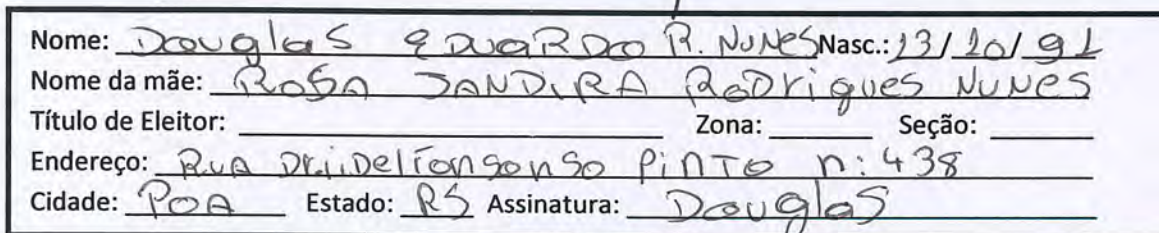 Nome: Douglas eDuaRDo R. NuNeS Nasc.: 13/10/91
Nome da mãe: RoSA JANDiRA RoDrigues NuNes
Título de Eleitor: Zona: Seção:
Endereço: RuA Dr.iDelfonsonso PiNTo n: 438
Cidade: POA Estado: RS Assinatura: Douglas